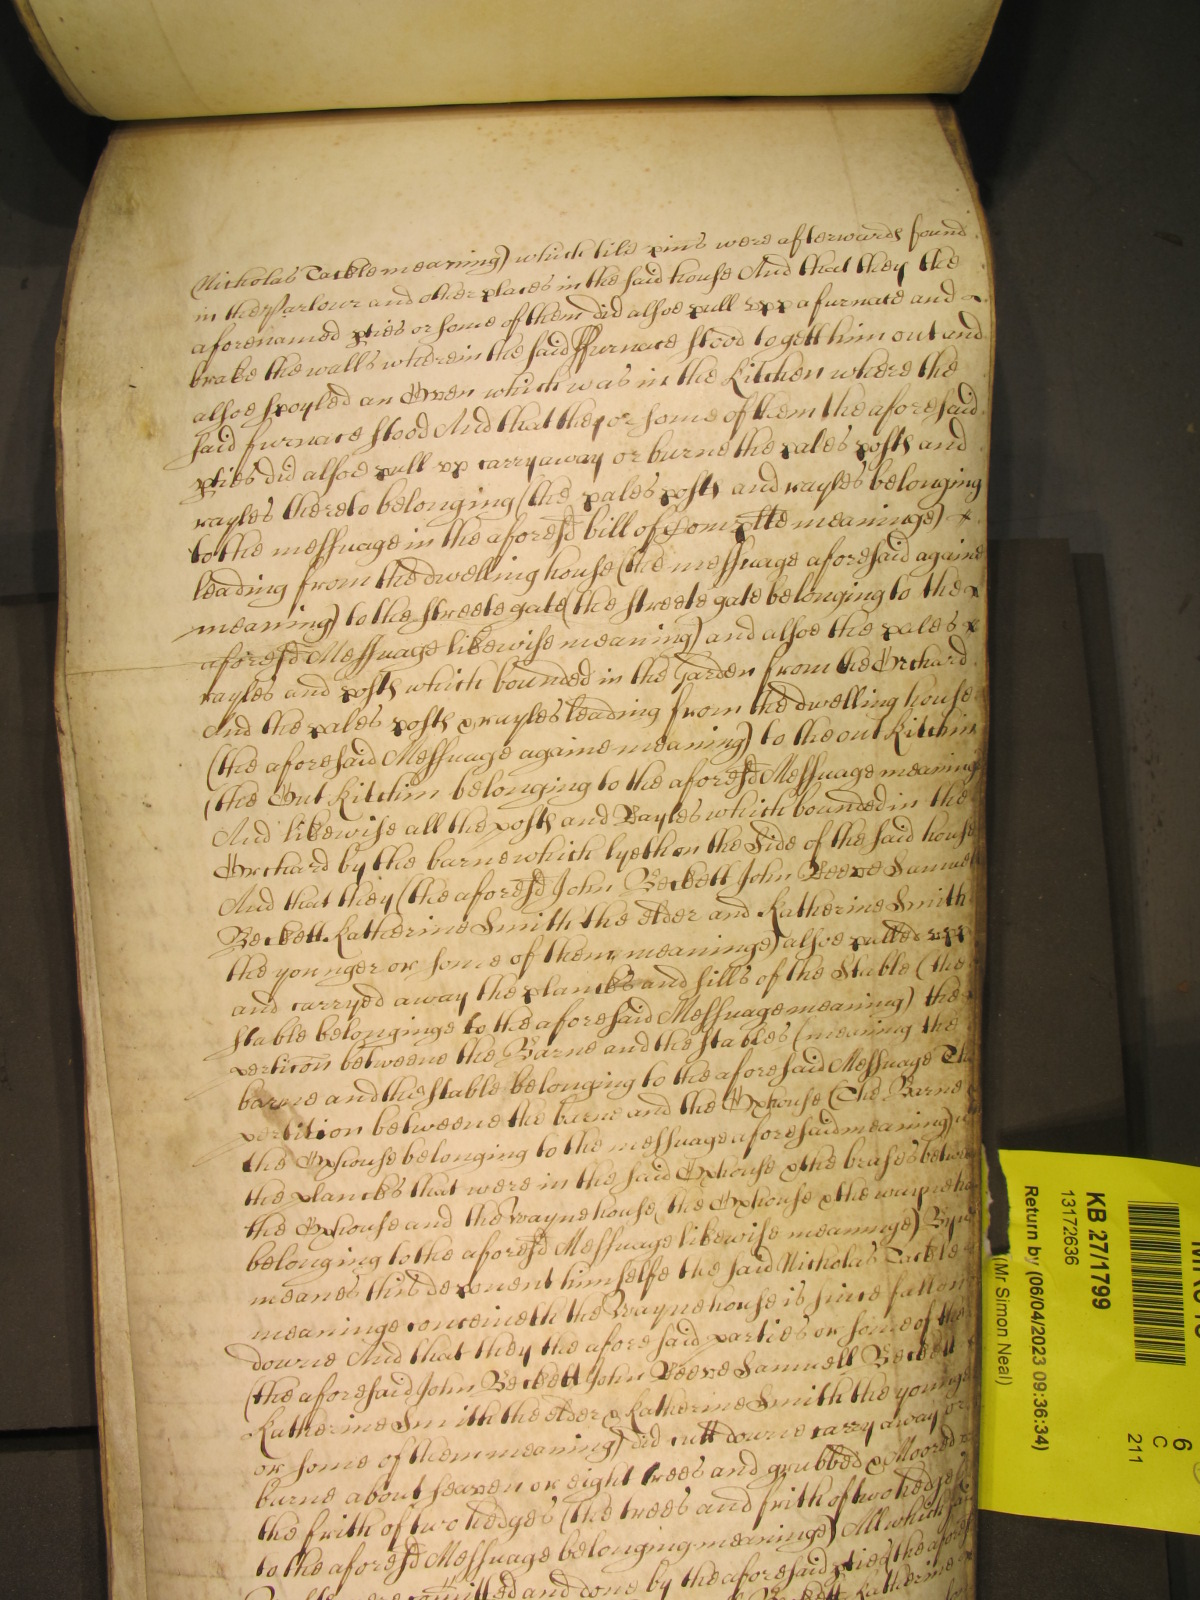 Nicholas Tackle meaning) which tile pins were afterwards found
in the Parlour and other places in the said house And that they the
aforenamed pties or some of them did alsoe pull upp a furnace and
brake the walls wherein the said ffurnace stood to gett him out and
alsoe spoyled an Oven which was in the Kitchen where the
said furnace stood And that they or some of them the aforesaid
pties did alsoe pull up carry away or burne the pales posts and
rayles thereto belonging (the pales posts and rayles belonging
to the messuage in the aforesd bill of Complte meaninge)
leading from the dwelling house (the messuage aforesaid againe
meaning) to the streete gate (the streete gate belonging to the
aforesd Messuage likewise meaning) and alsoe the pales
rayles and posts which bounded in the Garden from the Orchard
And the pales posts & rayles leading from the dwelling house
(the aforesaid Messuage againe meaning) to the out Kitchin
(the Out Kitchin belonging to the aforesd Messuage meaning
And likewise all the posts and Rayles which bounded in the
Orchard by the barne which lyeth on the Side of the said house
And that they (the aforesd John Beckett John Reeve Samuell
Beckett Katherine Smith the elder and Katherine Smith
the younger or some of them meaninge) alsoe pulled upp
and carryed away the planckes and sills of the Stable (the
Stable belonginge to the aforesaid Messuage meaning) the
perticon betweene the Barne and the Stables (meaning the
barne and the stable belonging to the aforesaid Messuage The
pertition betweene the barne and the Oxhouse (The Barne
the Oxhouse belonging to the messuage aforesaid meaning)
the planckes that were in the said Oxhouse & the brases betweene
the Oxhouse and the Waynehouse (the Oxhouse & the wayneho
belonging to the aforesd Messuage likewise meaninge) By
meanes this deponent himselfe the said Nicholas Tackle
meaninge conceiveth the Waynehouse is since fallen
downe And that they the aforesaid parties or some of them
(the aforesaid John Beckett John Reeve Samuell Beckett
Katherine Smith the elder & Katherine Smith the younge
or some of them meaning) did cutt downe carry away or
burne about seaven or eight trees and grubbed & Moored
the frith of two hedges (the trees and frith of two hedges
to the aforesd Messuage belonging meaninge) All which
comitted and done by the aforesaid pties the afores
Beckett Katherine
KB 27/1799
13172636
Return by (06/04/2023 09:36:34)
(Mr Simon Neal)
6
C
211